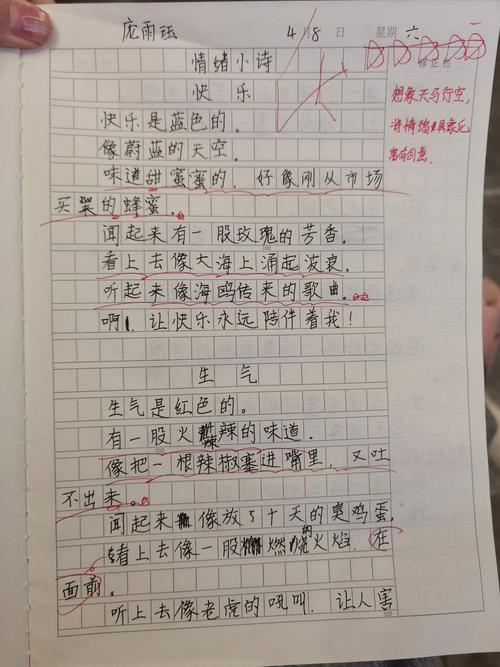 庞雨珏 4月8日 星期六
情绪小诗
修正栏
快乐
想象天马行空,
快乐是蓝色的。
将情绪具象化
像蔚蓝的天空。
富有创意。
味道甜蜜蜜的,好像刚从市场
买的蜂蜜。
闻起来有一股玫瑰的芳香。
看上去像大海上涌起波浪。
听起来像海鸥传来的歌曲。
啊!让快乐永远陪伴着我!
生气
生气是红色的。
有一股火辣辣的味道。
像把一根辣椒塞进嘴里,又吐
不出来。
闻起来像放了十天的臭鸡蛋。
看上去像一股燃烧的火焰,在
面前。
听上去像老虎的吼叫,让人害